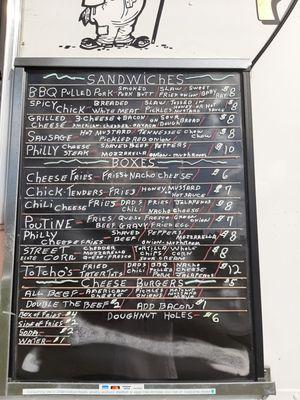 SANDWICHES
BBQ PULLED PORK SMOKED SLAW/SWEET $8
PORK BUTT FRIED ONION/BABY RAY
SPICY BREADED SLAW TOSSED IN $8
CHICK WHITE MEAT HONEY OR HOT
PICKLES MUSTARD SAUCE
GRILLED 3-CHEESE & BACON ON SOUR $8
CHEESE AMERICAN-CHEDDAR DOUGH BREAD
SAUSAGE HOT MUSTARD/TENNESSEE CHOW CHOW $8
PICKLED RED ONION
PHILLY CHEESE SHAVED BEEF PEPPERS $10
STEAK MOZZARELLA ONION-MUSHROOM
BOXES
CHEESE FRIES-FRIES & NACHO CHEESE $6
CHICK-TENDERS-FRIES/HONEY MUSTARD $7
HOT SAUCE
CHILI FRIES DAD'S FRIES JALAPENOS $8
CHEESE CHILI NACHO CHEESE
POUTINE-FRIES/QUESO FRESCO GREEN ONION $7
BEEF GRAVY FRIED EGG
PHILLY SHAVED PEPPERS $8
CHEESE FRIES BEEF MOZZARELLA
ONION-MUSHROOM
STREET CHEDDAR TORTILLA WHOLE $8
ELITE CORN MOZZARELLA CHIPS/CORN
QUESO-FRESCO SOUR CREAM
TOTCHO'S FRIED DAD'S BBQ NACHO $12
TATER TOTS CHILI PULLED CHEESE
PORK JALAPENOS
CHEESE BURGERS $5
ALL BEEF-AMERICAN PICKLES MUSTARD
CHEESE ONIONS
DOUBLE THE BEEF $2 ADD BACON $1
BOX OF FRIES $4 DOUGHNUT HOLES-$6
SIDE OF FRIES
SODA $2
WATER-$1